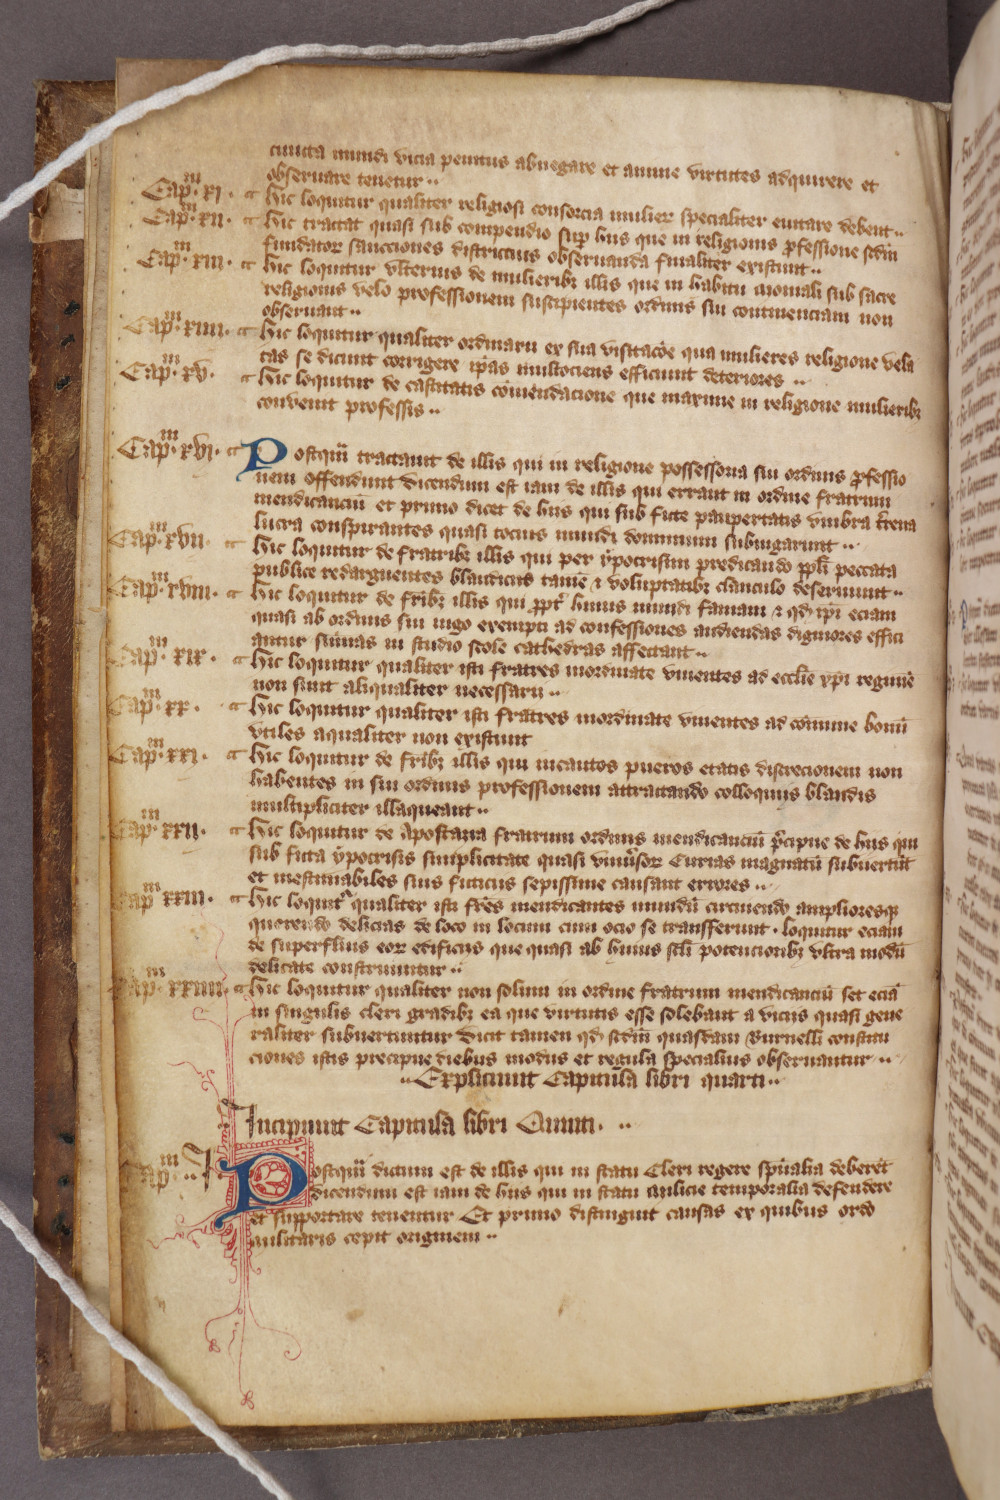 cuncta mundi vicia penitus abnegare et anime virtutes adquirere et
obseruare tenetur··
Capm·xi· Hic loquitur qualiter religiosi consorcia mulieꝝ specialiter euitare debent··
Capm·xii· Hic tractat quasi sub compendio suꝑ hiis que in religionis ꝓfessione scdm
fundatoꝝ sancciones districcius obseruanda finaliter existunt··
Capm·xiii· Hic loquitur vlterius de mulieribꝫ illis que in habitu moniali sub sacre
religionis velo professionem suscipientes ordinis sui continenciam non
obseruant··
Capm·xiiii· Hic loquitur qualiter ordinarii ex sua visitacōe qua mulieres religione vela
tas se dicunt corrigere ip̄as multociens efficiunt deteriores··
Capm·xv· Hic loquitur de castitatis cōmendacione que maxime in religione mulieribꝫ
conuenit professis··
Capm·xvi· Postqūm tractauit de illis qui in religione possessoria sui ordinis ꝓfessio
nem offendunt dicendum est iam de illis qui errant in ordine fratrum
mendicanciū et primo dicet de hiis qui sub ficte paupertatis vmbra t̄rena
lucra conspirantes quasi tocius mundi dominium subiugarunt··
Capm·xvii· Hic loquitur de fratribꝫ illis qui per ypocrisim predicando pp̄li peccata
publice redarguentes blandiciis tamē ⁊ voluptatibꝫ clanculo deseruiunt··
Capm·xviii· Hic loquitur de fr̄ibꝫ illis qui ꝓpt̄ huius mundi famam ⁊ qd̄ ip̄i eciam
quasi ab ordinis sui iugo exempti ad confessiones audiendas digniores effici
antur summas in studio scole cathedras affectant··
Capm·xix· Hic loquitur qualiter isti fratres inordinate viuentes ad eccl̄ie xp̄i regimē
non sunt aliqualiter necessarii··
Capm·xx· Hic loquitur qualiter isti fratres inordinate viuentes ad cōmune bonū
vtiles aqualiter non existunt
Capm·xxi· Hic loquitur de fr̄ibꝫ illis qui incautos pueros etatis discrecionem non
habentes in sui ordinis professionem attractando colloquiis blandis
multipliciter illaqueant··
Capm·xxii· Hic loquitur de Apostasia fratrum ordinis mendicanciū p̄cipue de hiis qui
sub ficta ypocrisis simplicitate quasi vniu͛soꝝ Curias magnatū subuertūt
et inestimabiles suis ficticiis sepissime causant errores··
Capm xxiii· Hic loquit͛ qualiter isti fr̄es mendicantes mundū circuiendo amplioresqꝫ
querendo delicias de loco in locum cum ocio se transferunt· loquitur eciam
de superfluis eoꝝ edificiis que quasi ab huius sc̄li potencioribꝫ vltra modū
delicate construuntur··
Capm·xxiiii· Hic loquitur qualiter non solum in ordine fratrum mendicanciū set eciā
in singulis cleri gradibꝫ ea que virtutis esse solebant a viciis quasi gene
raliter subuertuntur dicit tamen qd̄ scdm quasdam Burnelli constitu
ciones istis precipue diebus modus et regula specialius obseruantur··
··Expliciunt Capitula libri quarti··
Incipiunt Capitula libri Quinti···
Capm·I· Postqūm dictum est de illis qui in statu Cleri regere sp̄ualia deberēt
dicendum est iam de hiis qui in statu milicie temporalia defendere
et supportare tenentur Et primo distinguit causas ex quibus ordo
militaris cepit originem··